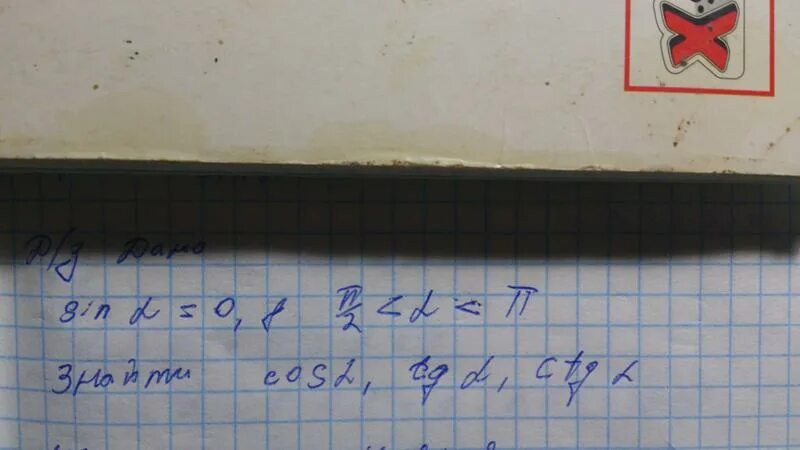 Д/з Дано
sin α = 0,8 π/2 < α < π
Знайти cos α, tg α, ctg α